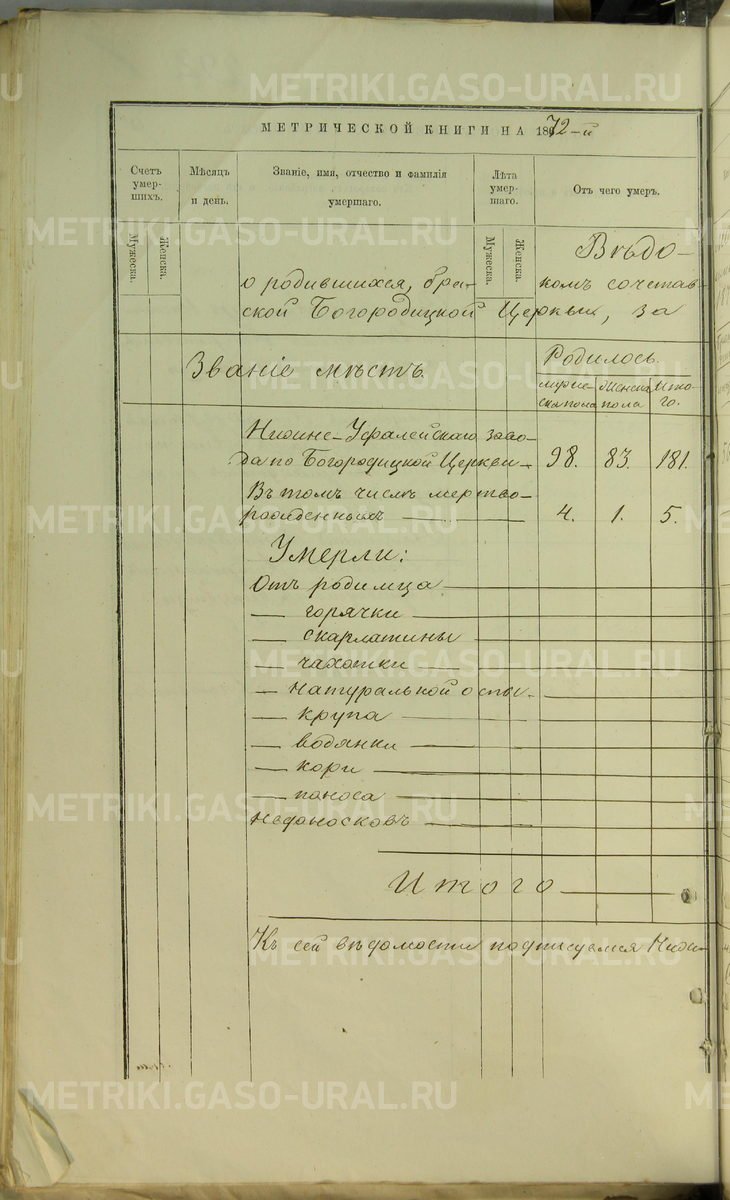 МЕТРИЧЕСКОЙ КНИГИ НА 1872-й
Счетъ умер-шихъ.
Мѣсяцъ и день.
Званіе, имя, отчество и фамилія умершаго.
Лѣта умер-шаго.
Отъ чего умеръ.
Мужеска.
Женска.
Мужеска.
Женска.
Вѣдо-
о родившихся, бра-
комъ сочетав-
ской Богородицкой Церквы, за
Званіе мѣстъ.
Родилось.
мужескa пола
женска пола
Ито-го.
Нижне-Уфалейскаго заво-
да по Богородицкой Церкви – 98. 83. 181.
Въ томъ числѣ мертво-
рожденныхъ — 4. 1. 5.
Умерли:
Отъ родимца —
— горячки —
— скарлатины —
— чахотки —
— натуральной оспы –
— крупа —
— водянки —
— кори —
— поноса —
Недоносковъ —
Итого —
Къ сей вѣдомости подписуемся Ниж-
METRIKI.GASO-URAL.RU